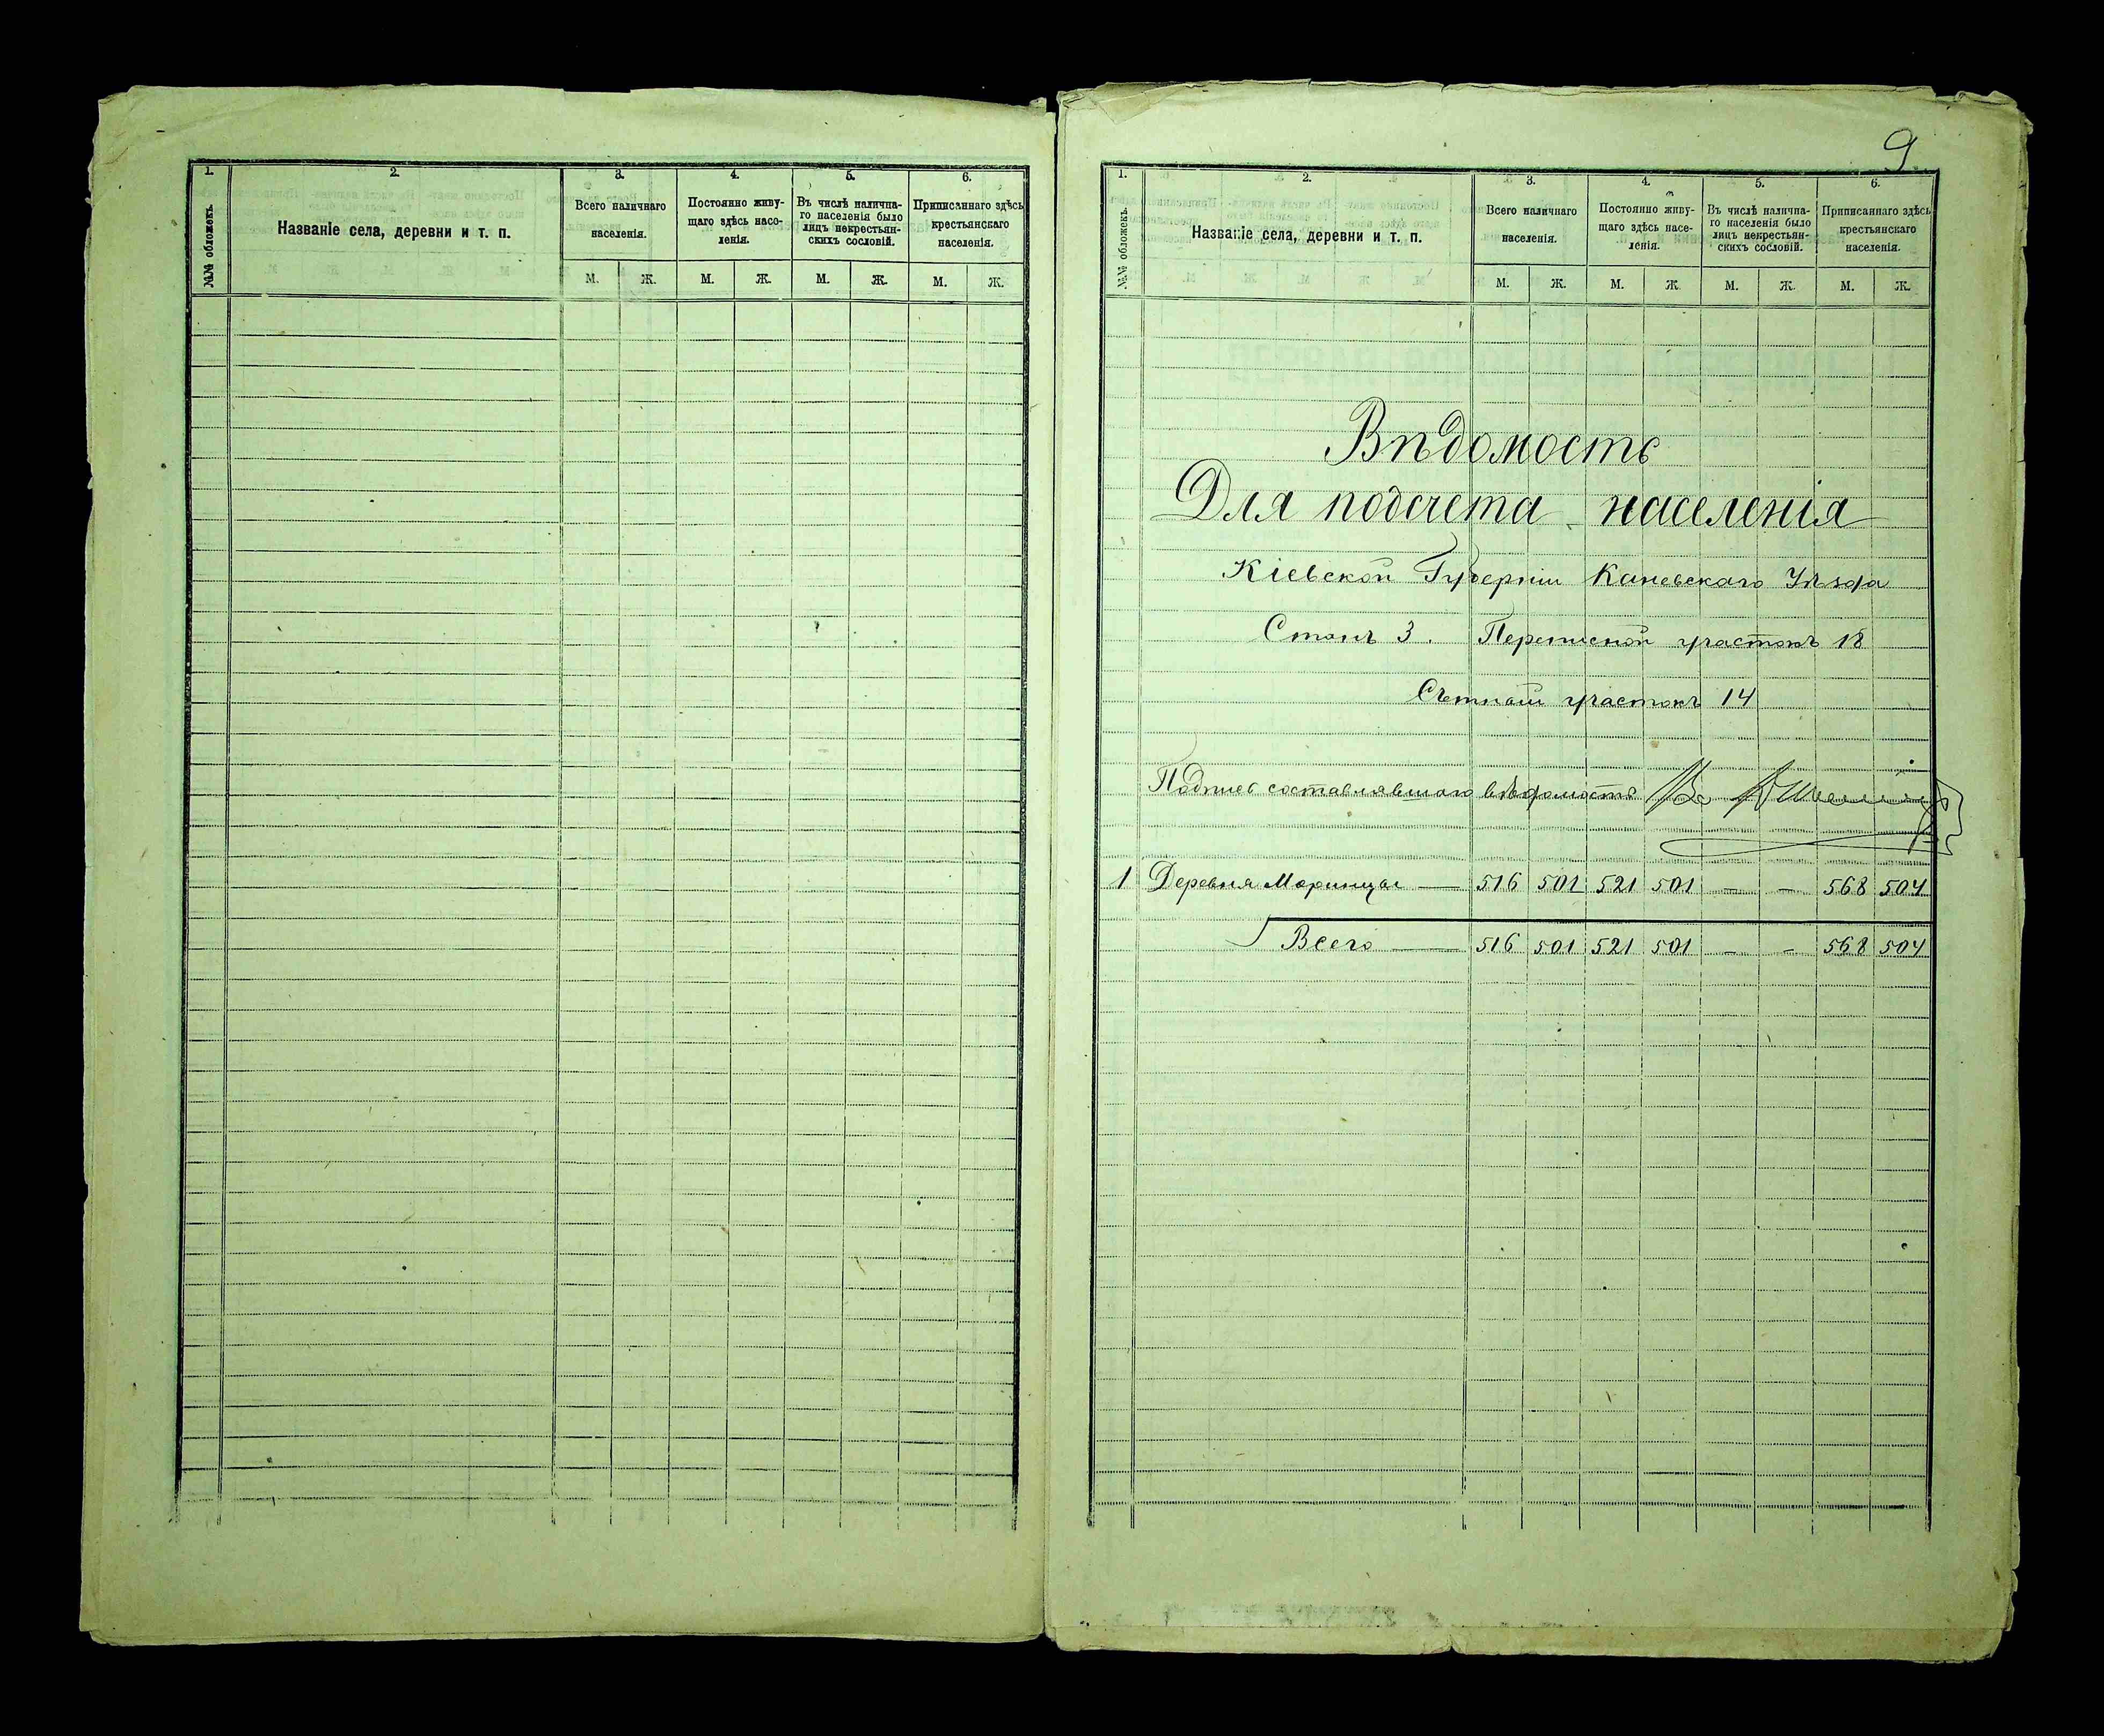 1. 2. 3. 4. 5. 6.
№№ обложекъ.
Названіе села, деревни и т. п.
Всего наличнаго
населенія.
Постоянно живу-
щаго здѣсь насе-
ленія.
Въ числѣ налична-
го населенія было
лицъ некрестьян-
скихъ сословій.
Приписаннаго здѣсь
крестьянскаго
населенія.
М. Ж. М. Ж. М. Ж. М. Ж.
9
1. 2. 3. 4. 5. 6.
№№ обложекъ.
Названіе села, деревни и т. п.
Всего наличнаго
населенія.
Постоянно живу-
щаго здѣсь насе-
ленія.
Въ числѣ налична-
го населенія было
лицъ некрестьян-
скихъ сословій.
Приписаннаго здѣсь
крестьянскаго
населенія.
М. Ж. М. Ж. М. Ж. М. Ж.
Вѣдомость
Для подсчета населенія
Кіевской Губерніи Каневскаго Уѣзда
Станъ 3. Переписной участокъ 18
Счетный участокъ 14
Подпись составлявшаго вѣдомость
1 Деревня Моринцы — 516 501 521 501 — — 568 504
Всего — 516 501 521 501 — — 568 504